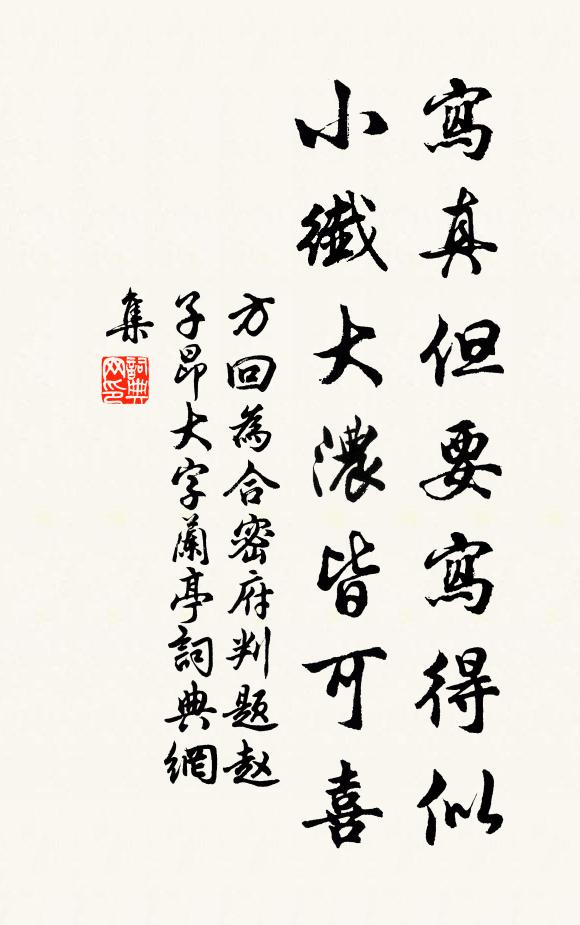 寫真但要寫得似
小纖大濃皆可喜
方回為合密府判題赵
子昂大字蘭亭詞典網
集
詞典
网印